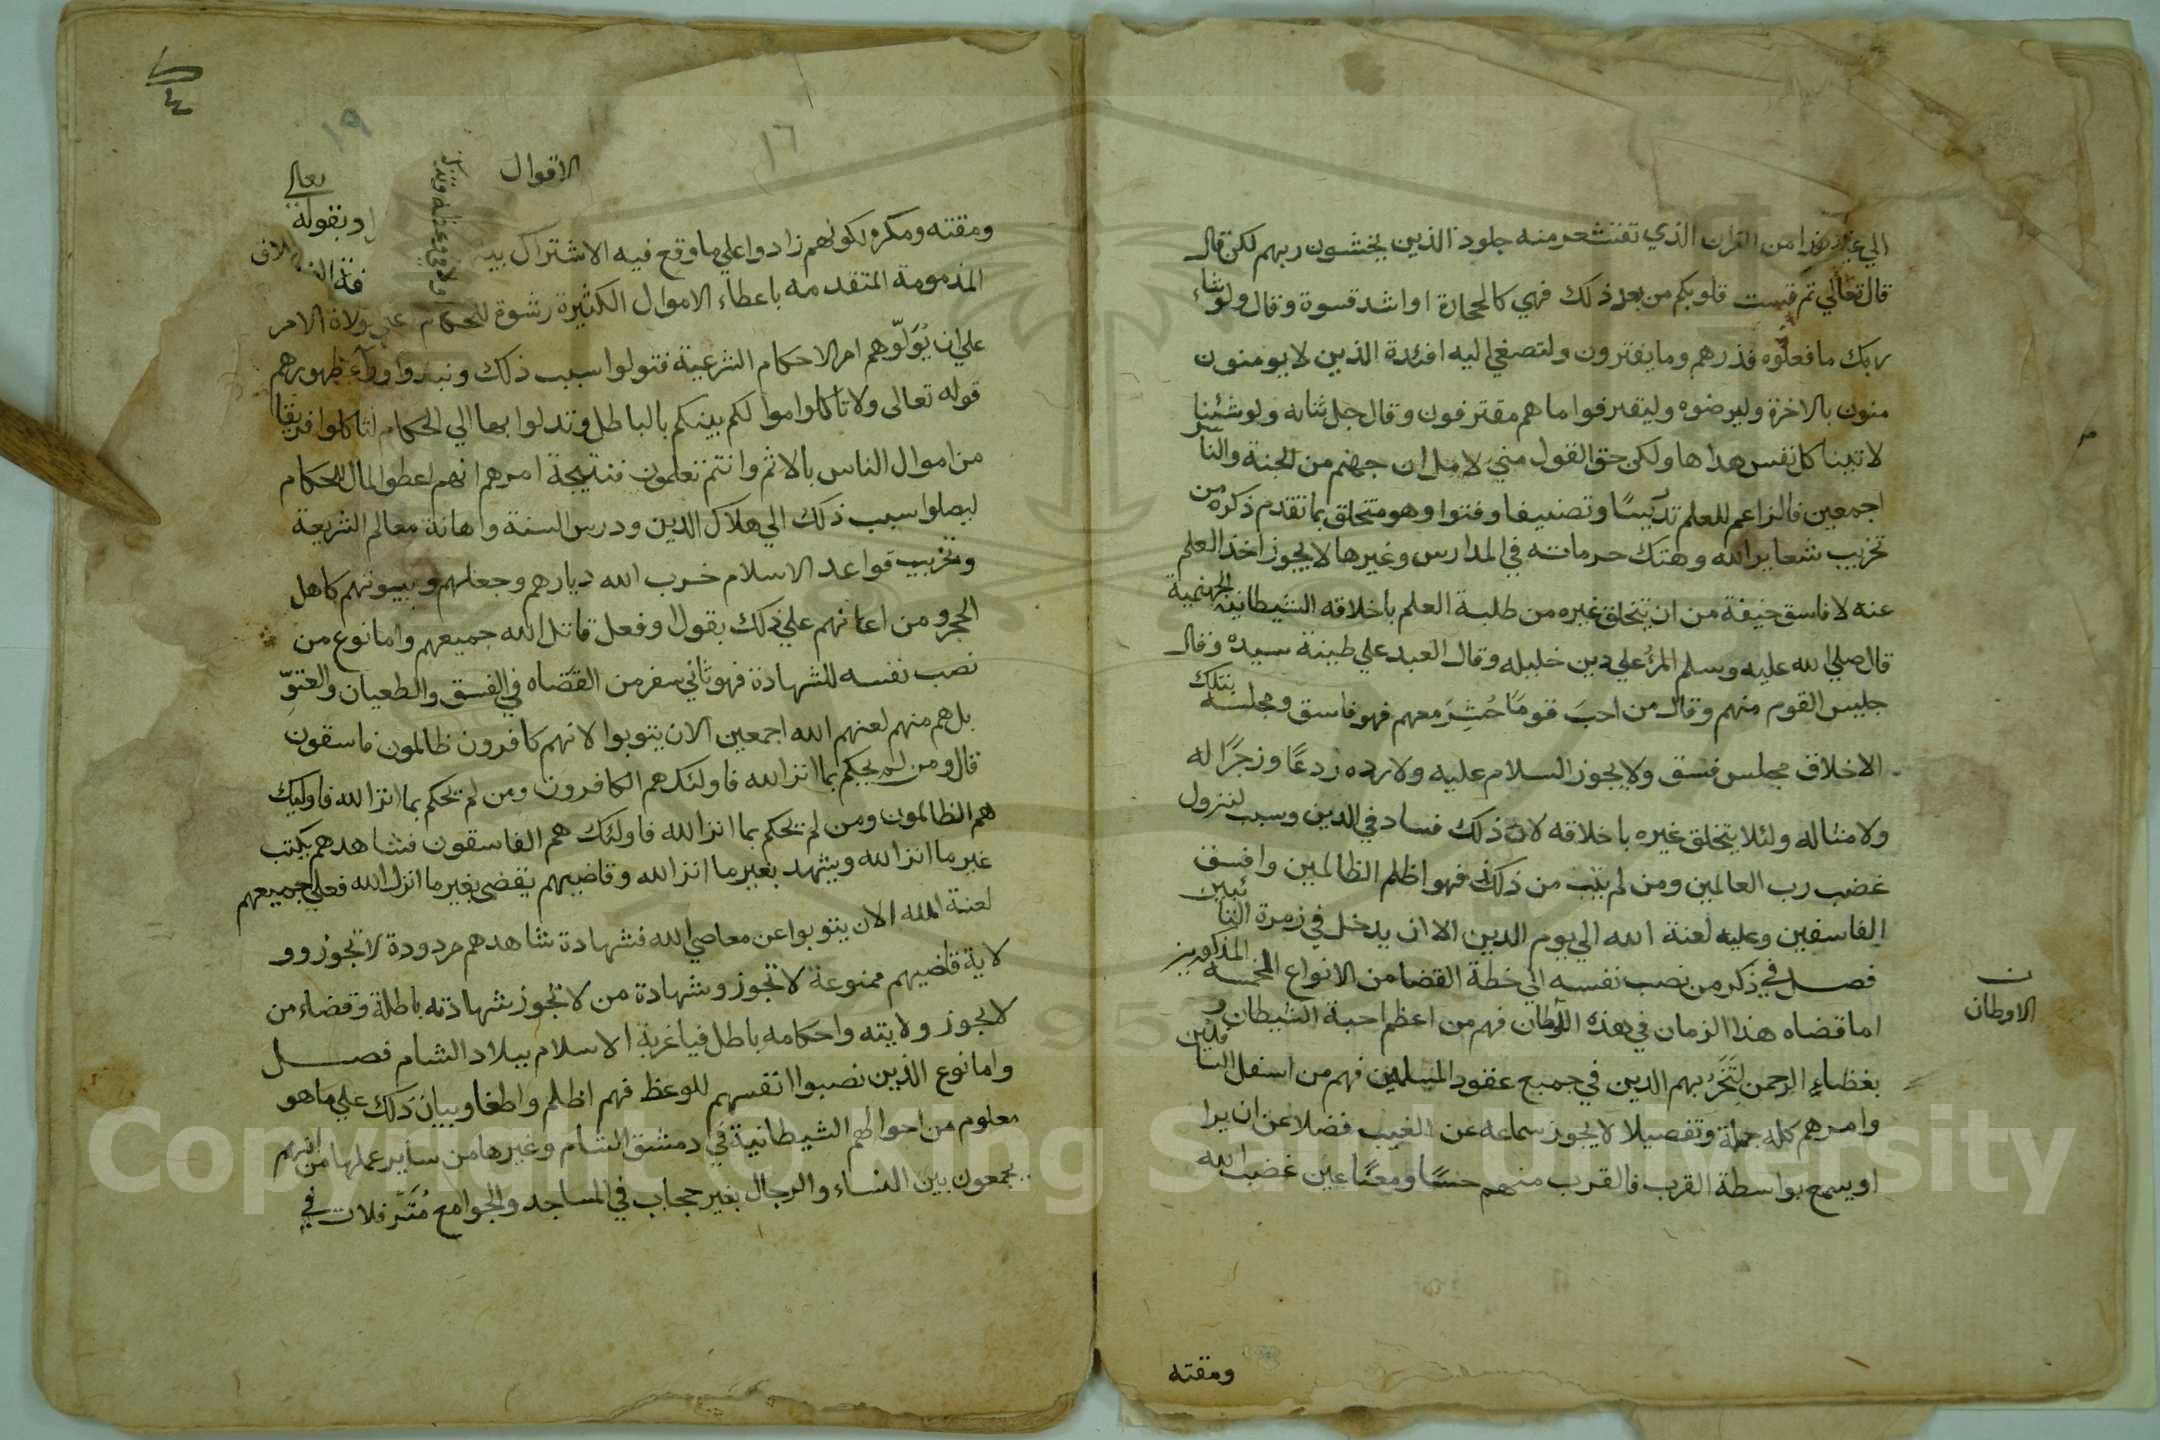 الي غير هذا من القران الذي تقشعر منه جلود الذين يخشون ربهم لكن قال
قال تعالي ثم قست قلوبكم من بعد ذلك فهي كالحجارة او اشد قسوة وقال ولو شاء
ربك ما فعلوه فذرهم وما يفترون ولتصغي اليه افئدة الذين لا يومنون
منون بالاخرة وليرضوه وليقترفوا ما هم مقترفون وقال جل ثناه ولو شئنا
لاتينا كل نفس هداها ولكن حق القول مني لاملان جهنم من الجنة والناس
اجمعين فالزاعم للعلم تدريسًا وتصنيفا وفتوا وهو متخلق بما تقدم ذكره من
تخريب شعاير الله وهتك حرماته في المدارس وغيرها لا يجوز اخذ العلم
عنه لا فاسق خيفة من ان يتخلق غيره من طلبة العلم باخلاقه الشيطانية الجهنمية
قال صلي الله عليه وسلم المرءُ علي دين خليله وقال العبد علي طينة سيده وقال
جليس القوم منهم وقال من احبَ قومًا حُشِرَ معهم فهو فاسق ومجلسه بتلك
الاخلاق مجلس فسق ولا يجوز السلام عليه ولا رده ردعًا وزجرًا له
ولامثاله ولئلا يتخلق غيره باخلاقه لان ذلك فساد في الدين وسبب لنزول
غضب رب العالمين ومن لم يتب من ذلك فهو اظلم الظالمين وافسق
الفاسقين وعليه لعنة الله الي يوم الدين الا ان يدخل في زمرة التائبين
فصل في ذكر من نصب نفسه الي خطة القضا من الانواع الخمسه المذكورين
اما قضاه هذا الزمان في هذه الاوطان فهم من اعظم احبة الشيطان و
ن
الاوطان
بغضاءِ الرحمن لتَخَرُّبهم الدين في جميع عقود المسلمين فهم من اسفل السافلين
وامرهم كله جملة وتفصيلا لا يجوز سماعه عن الغيب فضلا عن ان يرا
او يسمع بواسطة القرب فالقرب منهم حسًا ومعنًا عين غضب الله
ومقته
١٩
١٦
الاقوال
تعالي
بقوله
ومقته ومكره لكونهم زادوا علي ما وقع فيه الاشتراك
المذمومة المتقدمه باعطاء الاموال الكثيرة رشوة للحكام علي ولاة الامر
علي ان يُوَلّوهم امر الاحكام الشرعية فتولوا بسبب ذلك ونبذوا وراء ظهورهم
قوله تعالي ولا تاكلوا اموالكم بينكم بالباطل وتدلوا بها الي الحكام لتاكلوا فريقا
من اموال الناس بالاثم وانتم تعلمون فنتيجة امرهم انهم اعطوا المال للحكام
ليصلوا بسبب ذلك الي هلاك الدين ودرس السنة واهانة معالم الشريعة
وتخريب قواعد الاسلام خرب الله ديارهم وجعلهم وبيوتهم كاهل
الحجر ومن اعانهم علي ذلك بقول او فعل قاتل الله جميعهم واما نوع من
نصب نفسه للشهادة فهو ثاني سفر من القضاه في الفسق والطغيان والعتوّ
بل هم منهم لعنهم الله اجمعين الا ان يتوبوا لانهم كافرون ظالمون فاسقون
قال ومن لم يحكم بما انزل الله فاولئك هم الكافرون ومن لم يحكم بما انزل الله فاوليك
هم الظالمون ومن لم يحكم بما انزل الله فاولئك هم الفاسقون فشاهدهم يكتب
غير ما انزل الله ويشهد بغير ما انزل الله وقاضيهم يقضي بغير ما انزل الله فعلي جميعهم
لعنة الله الا ان يتوبوا عن معاصي الله فشهادة شاهدهم مردودة لا تجوز وو
لاية قاضيهم ممنوعة لا تجوز وشهادة من لا تجوز شهادته باطلة وقضاء من
لا يجوز ولايته واحكامه باطل فيا غربة الاسلام ببلاد الشام فصل
واما نوع الذين نصبوا انفسهم للوعظ فهم اظلم واطغا وبيان ذلك علي ما هو
معلوم من احوالهم الشيطانية في دمشق الشام وغيرها من ساير عملها من انهم
يجمعون بين النساء والرجال بغير حجاب في المساجد والجوامع مُتَرفلات في
Copyright © King Saud University